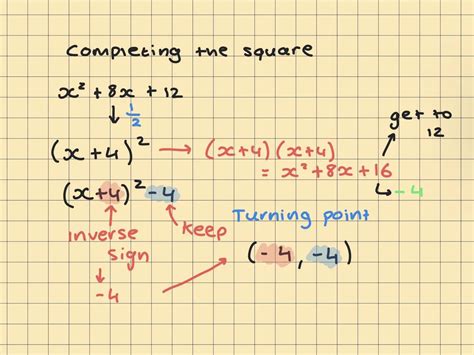 Completing the square
x² + 8x + 12
↓ 1/2
(x+4)² → (x+4)(x+4)
= x² + 8x + 16
get to
12
↳ -4
(x+4)² -4
inverse
sign
↓
-4
keep
Turning point
(-4, -4)